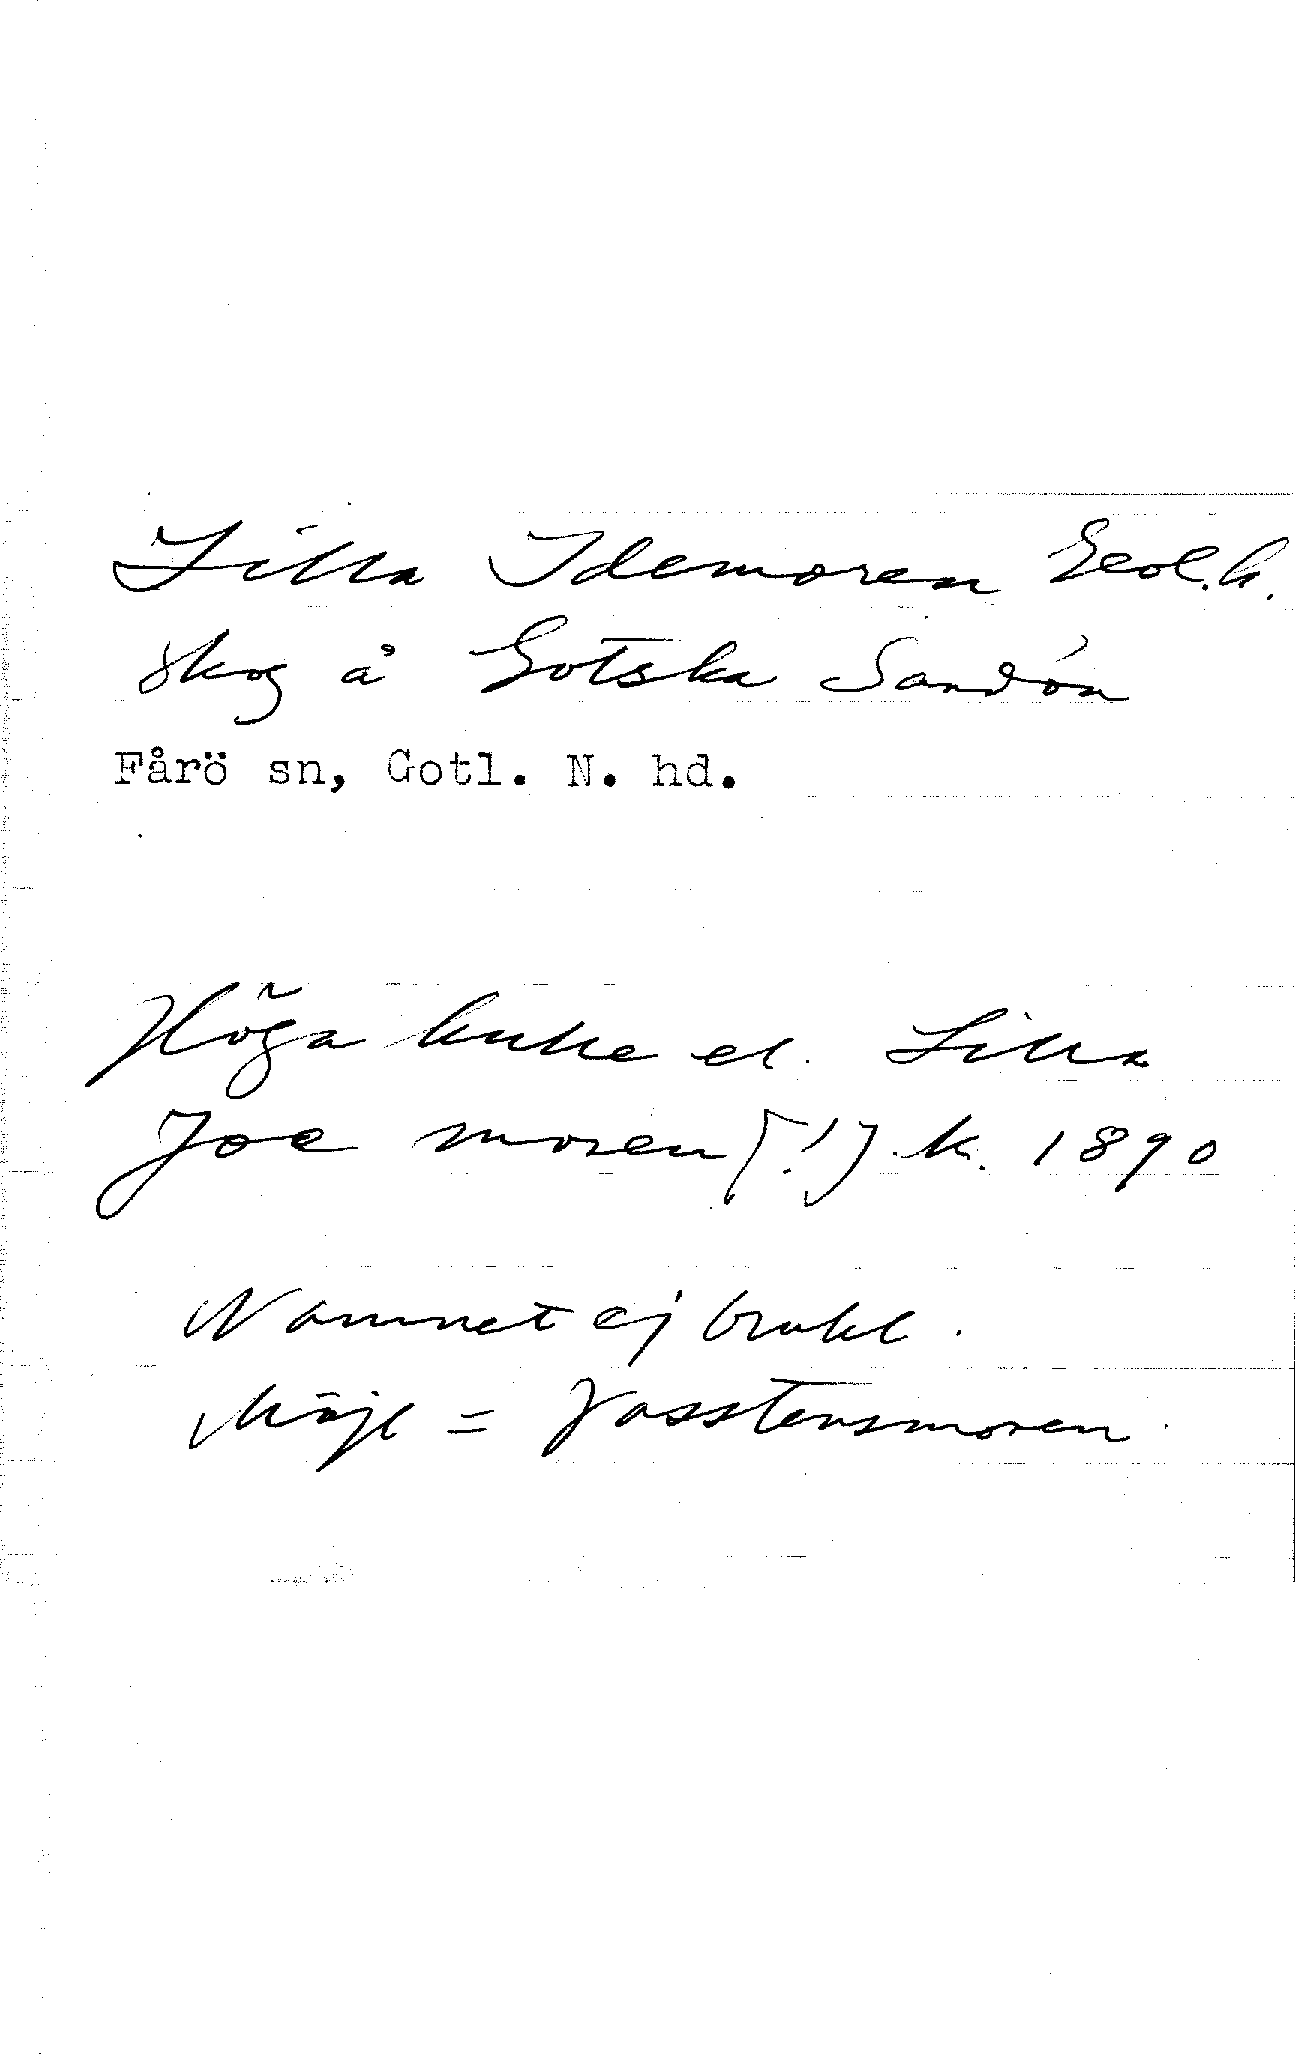 Lilla Idemoren Geol.k.
skog å Gotska Sandön
Fårö sn, Gotl. N. hd.
Höga kulle el. Lilla
Joe moren [!] k. 1890
Namnet ej brukl.
Möjl = Vasstensmoren